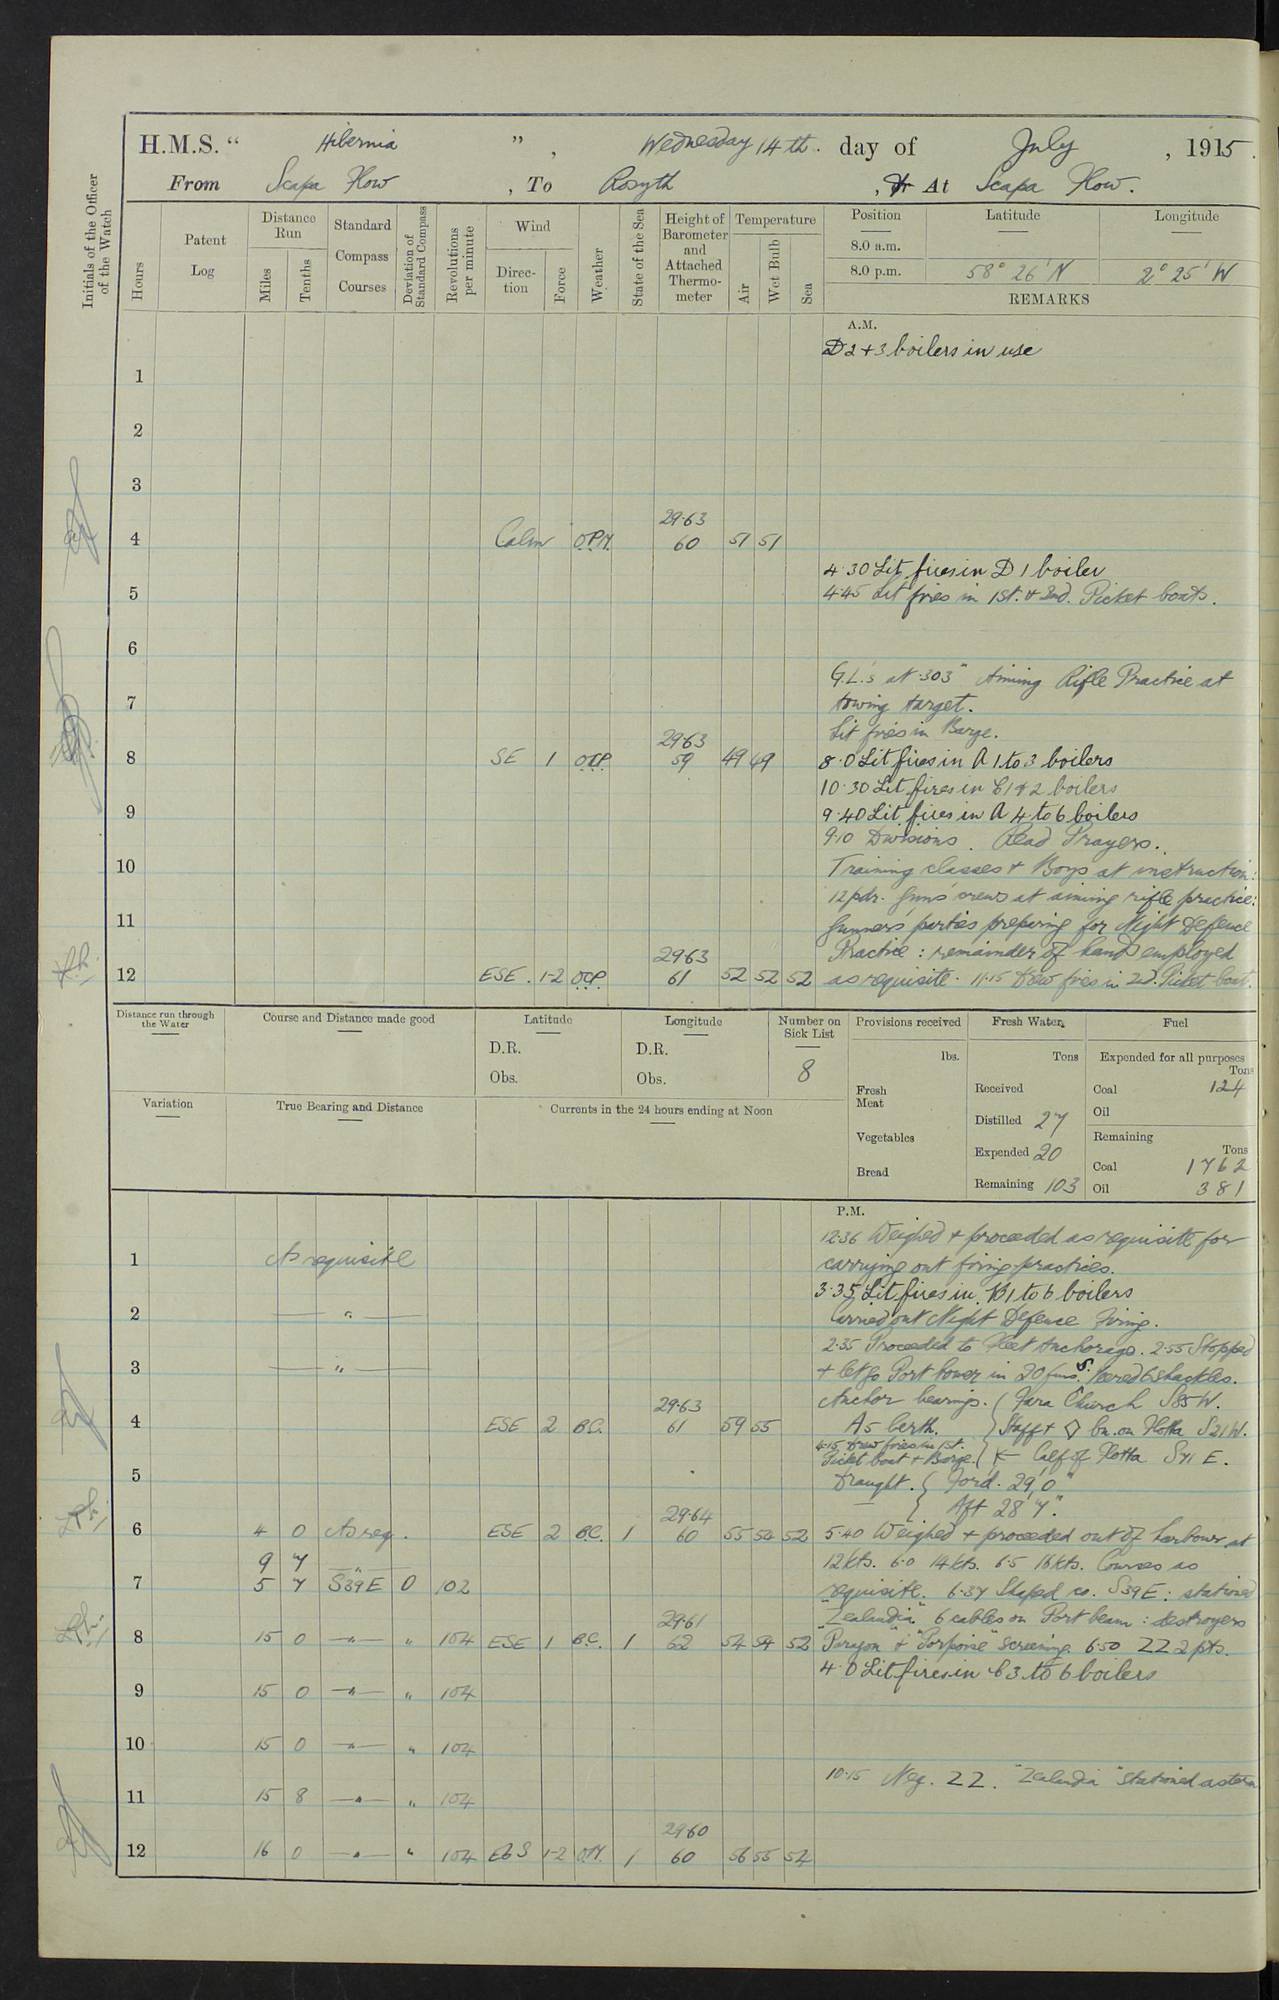 H.M.S. " Hibernia " , Wednesday 14th. day of July , 1915.
From Scapa Flow , To Rosyth , Or At Scapa Flow.
Initials of the Officer of the Watch
Hours
Patent Log
Distance Run
Miles
Tenths
Standard Compass Courses
Deviation of Standard Compass
Revolutions per minute
Wind
Direc-tion
Force
Weather
State of the Sea
Height of Barometer and Attached Thermo-meter
Temperature
Air
Wet Bulb
Sea
Position Latitude Longitude
8.0 a.m.
8.0 p.m. 58° 26' N 2° 25' W
REMARKS
A.M.
D 2 + 3 boilers in use
1
2
3
29.63
4 Calm O.P.M. 60 51 51
4.30 Lit fires in D 1 boiler
5 4.45 Lit fires in 1st. & 2nd. Picket boats.
6
G.L.'s at .303" Aiming Rifle Practice at
7 towing target.
Lit fires in Barge.
29.63
8 SE 1 O.C.P. 59 49 49 8.0 Lit fires in A 1 to 3 boilers
10.30 Lit fires in C 1 & 2 boilers
9 9.40 Lit fires in A 4 to 6 boilers
9.10 Divisions. Read Prayers.
10 Training classes + Boys at instruction:
12 pdr. Guns' crews at aiming rifle practice:
11 Gunners' parties preparing for Night Defence
29.63 Practice : remainder of hands employed
12 ESE. 1-2 O.C.P. 61 52 52 52 as requisite. 11.15 Drew fires in 2nd. Picket boat.
Distance run through the Water
Course and Distance made good
Latitude
D.R.
Obs.
Longitude
D.R.
Obs.
Number on Sick List
8
Variation
True Bearing and Distance
Currents in the 24 hours ending at Noon
Provisions received
lbs.
Fresh Meat
Vegetables
Bread
Fresh Water
Tons
Received
Distilled 27
Expended 20
Remaining 103
Fuel
Expended for all purposes
Tons
Coal 124
Oil
Remaining
Tons
Coal 1762
Oil 381
P.M.
12.36 Weighed + proceeded as requisite for
1 As requisite carrying out firing practices.
3.35 Lit fires in B 1 to 6 boilers
2 — " — Carried out Night Defence Firing.
2.35 Proceeded to Fleet Anchorage. 2.55 Stopped
3 — " — + let go Port bower in 20 fms. Veered 6 shackles.
29.63 Anchor bearings. ( Fara Church S85W.
4 ESE 2 B.C. 61 59 55 A5 berth. Staff + ◇ bn. on Flotta S21W.
4.15 Drew fires in 1st.
Picket boat + Barge. Calf of Flotta S71E.
5 Draught. Ford. 29' 0"
29.64 Aft 28' 7".
6 4 0 As req. ESE 2 B.C. 1 60 55 54 52 5.40 Weighed + proceeded out of harbour at
9 7 — " — 12 kts. 6.0 14 kts. 6.5 16 kts. Courses as
7 5 7 S39E 0 102 requisite. 6.37 Shaped co. S39E : stationed
29.61 "Zealandia" 6 cables on Port beam : destroyers
8 15 0 — " — " 104 ESE 1 B.C. 1 62 54 54 52 Paragon + "Porpoise" screening. 6.50 ZZ 2 pts.
4.0 Lit fires in C 3 to 6 boilers
9 15 0 — " — " 104
10 15 0 — " — " 104
10.15 Neg. ZZ. "Zealandia" stationed astern
11 15 8 — " — " 104
29.60
12 16 0 — " — " 104 EbS 1-2 O.M. 1 60 56 55 54